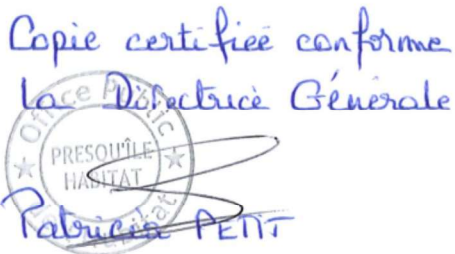 Copie certifiée conforme
La Directrice Générale
Office Public
PRESQU'ÎLE
HABITAT
Patricia PETIT